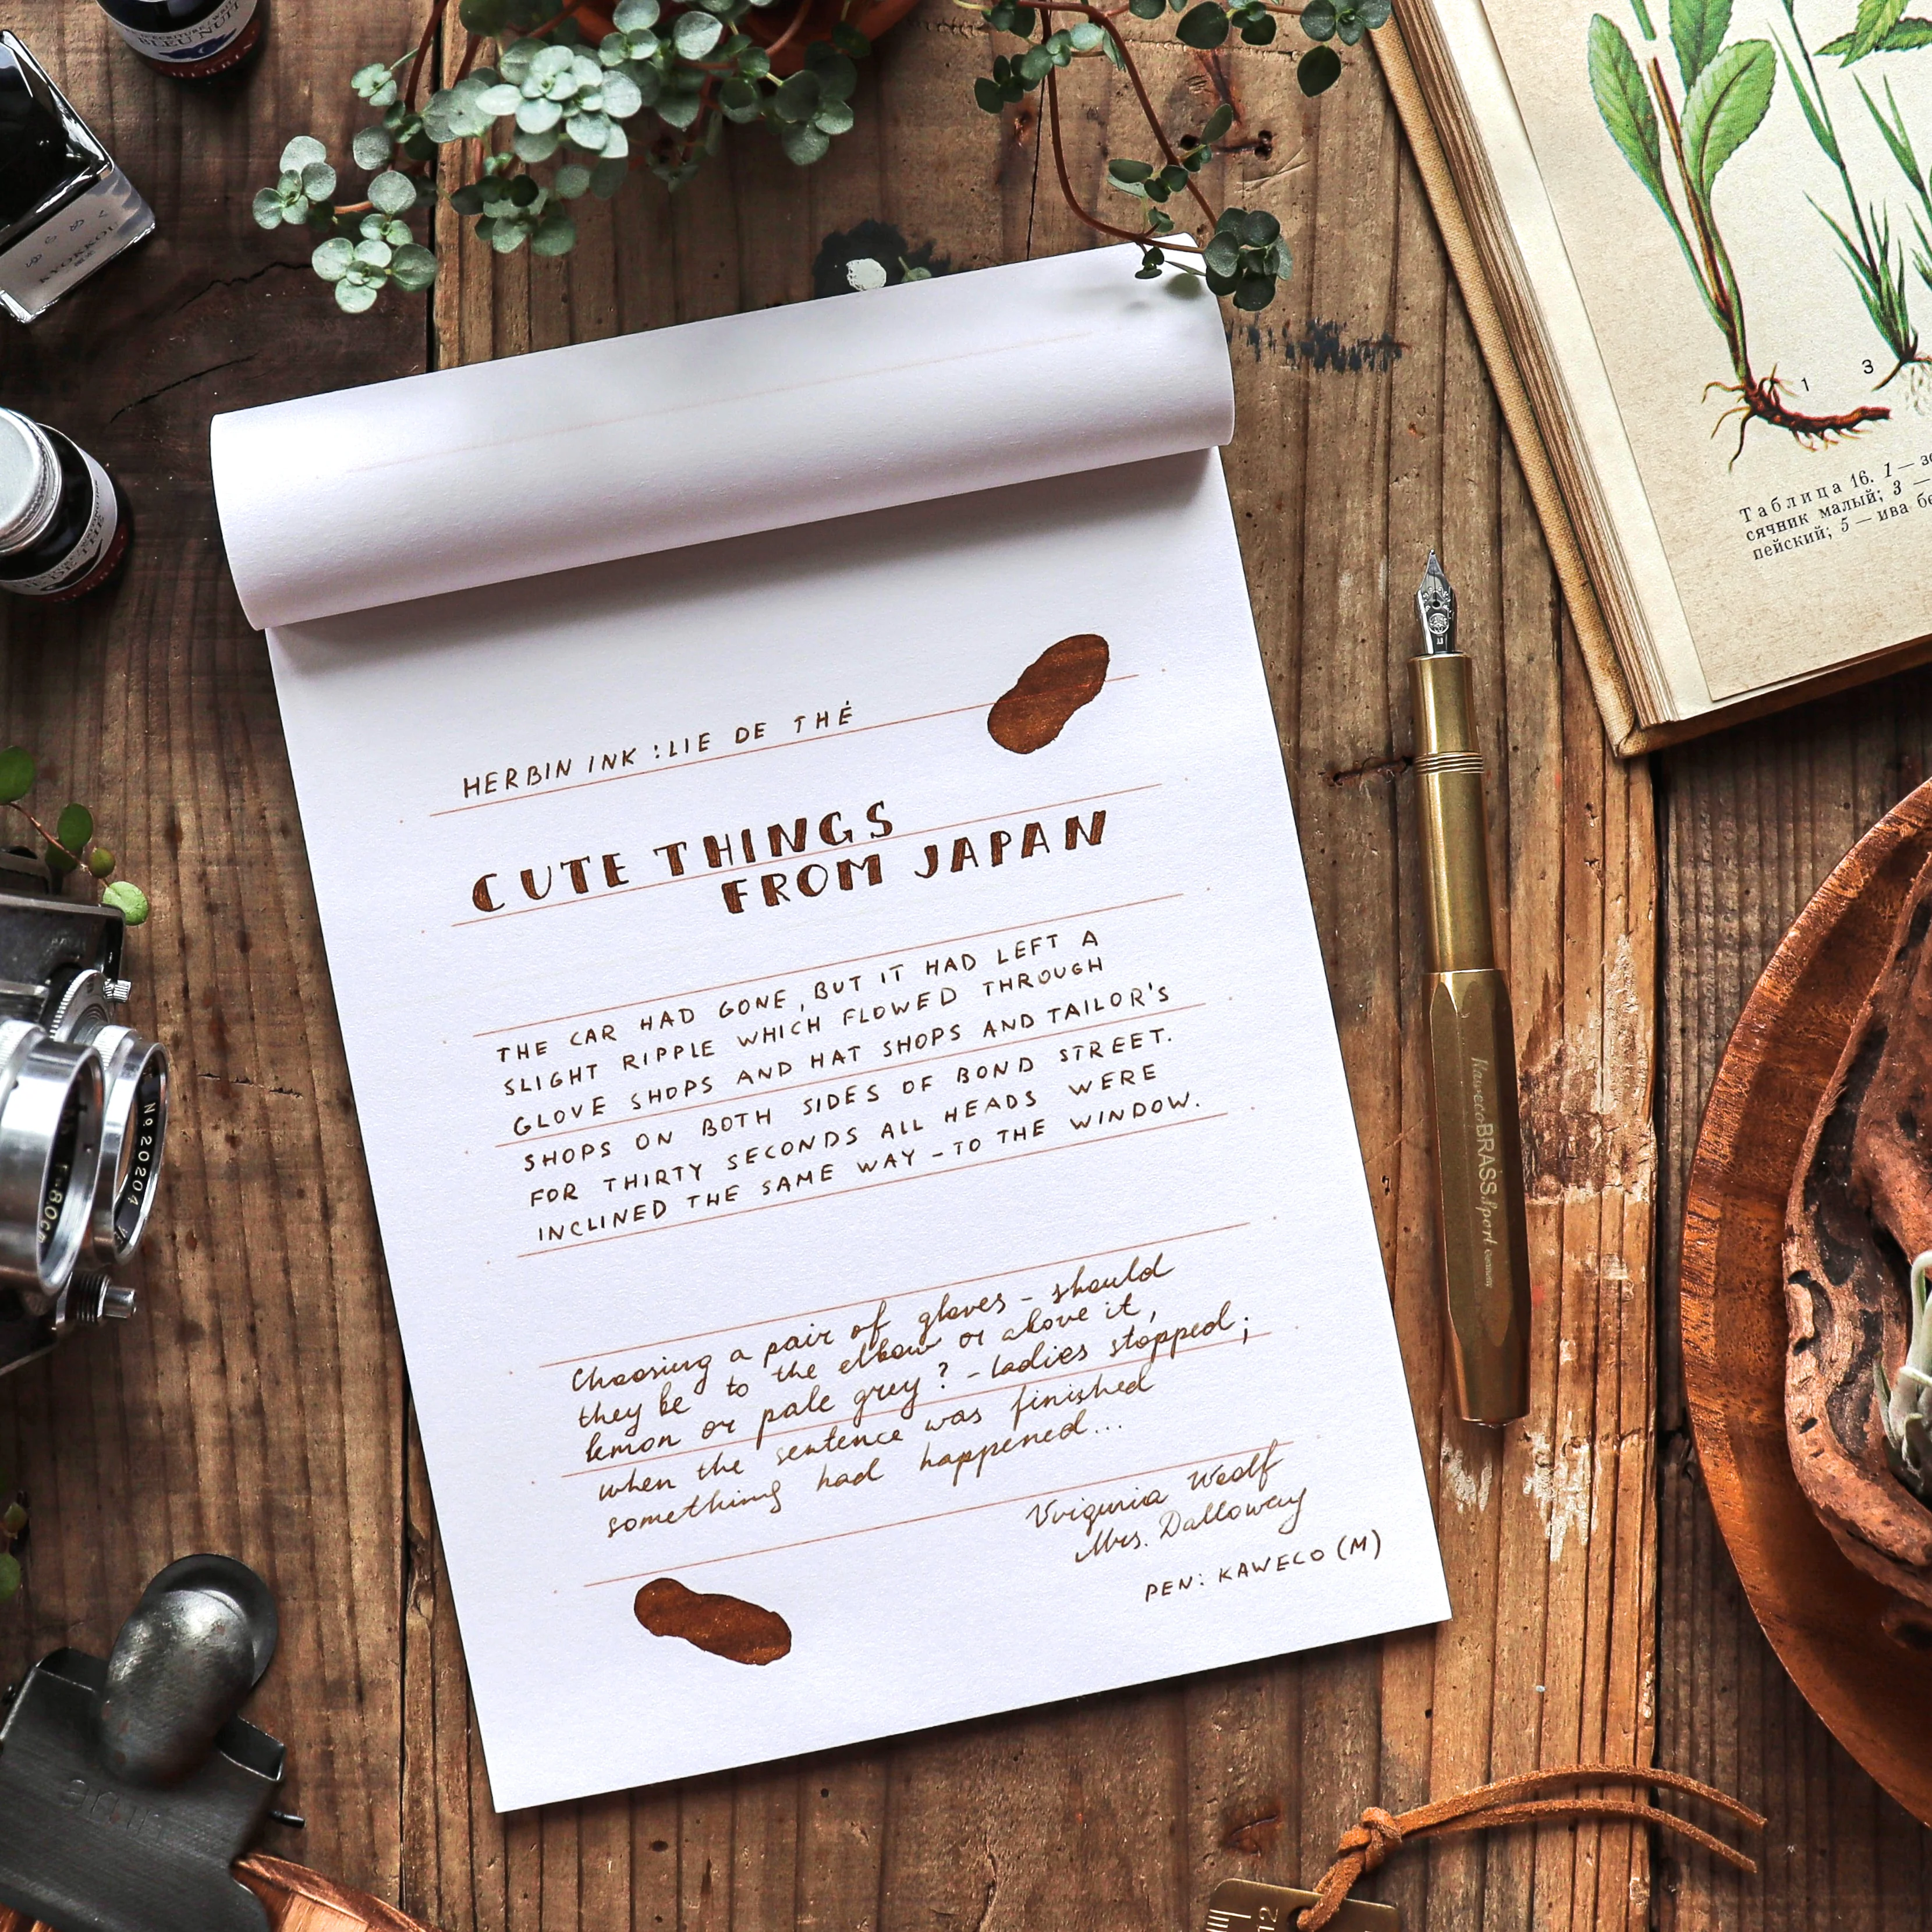 BLEU NUIT
KYOKKOU
HERBIN INK : LIE DE THÉ
CUTE THINGS
FROM JAPAN
THE CAR HAD GONE, BUT IT HAD LEFT A
SLIGHT RIPPLE WHICH FLOWED THROUGH
GLOVE SHOPS AND HAT SHOPS AND TAILOR'S
SHOPS ON BOTH SIDES OF BOND STREET.
FOR THIRTY SECONDS ALL HEADS WERE
INCLINED THE SAME WAY - TO THE WINDOW.
Choosing a pair of gloves - should
they be to the elbow or above it,
lemon or pale grey? - ladies stopped;
when the sentence was finished
something had happened...
Virginia Woolf
Mrs. Dalloway
PEN: KAWECO (M)
Kaweco BRASS Sport GERMANY
1 3
Таблица 16. 1 —
сячник малый; 3 —
пейский; 5 — ива
No. 20204
12